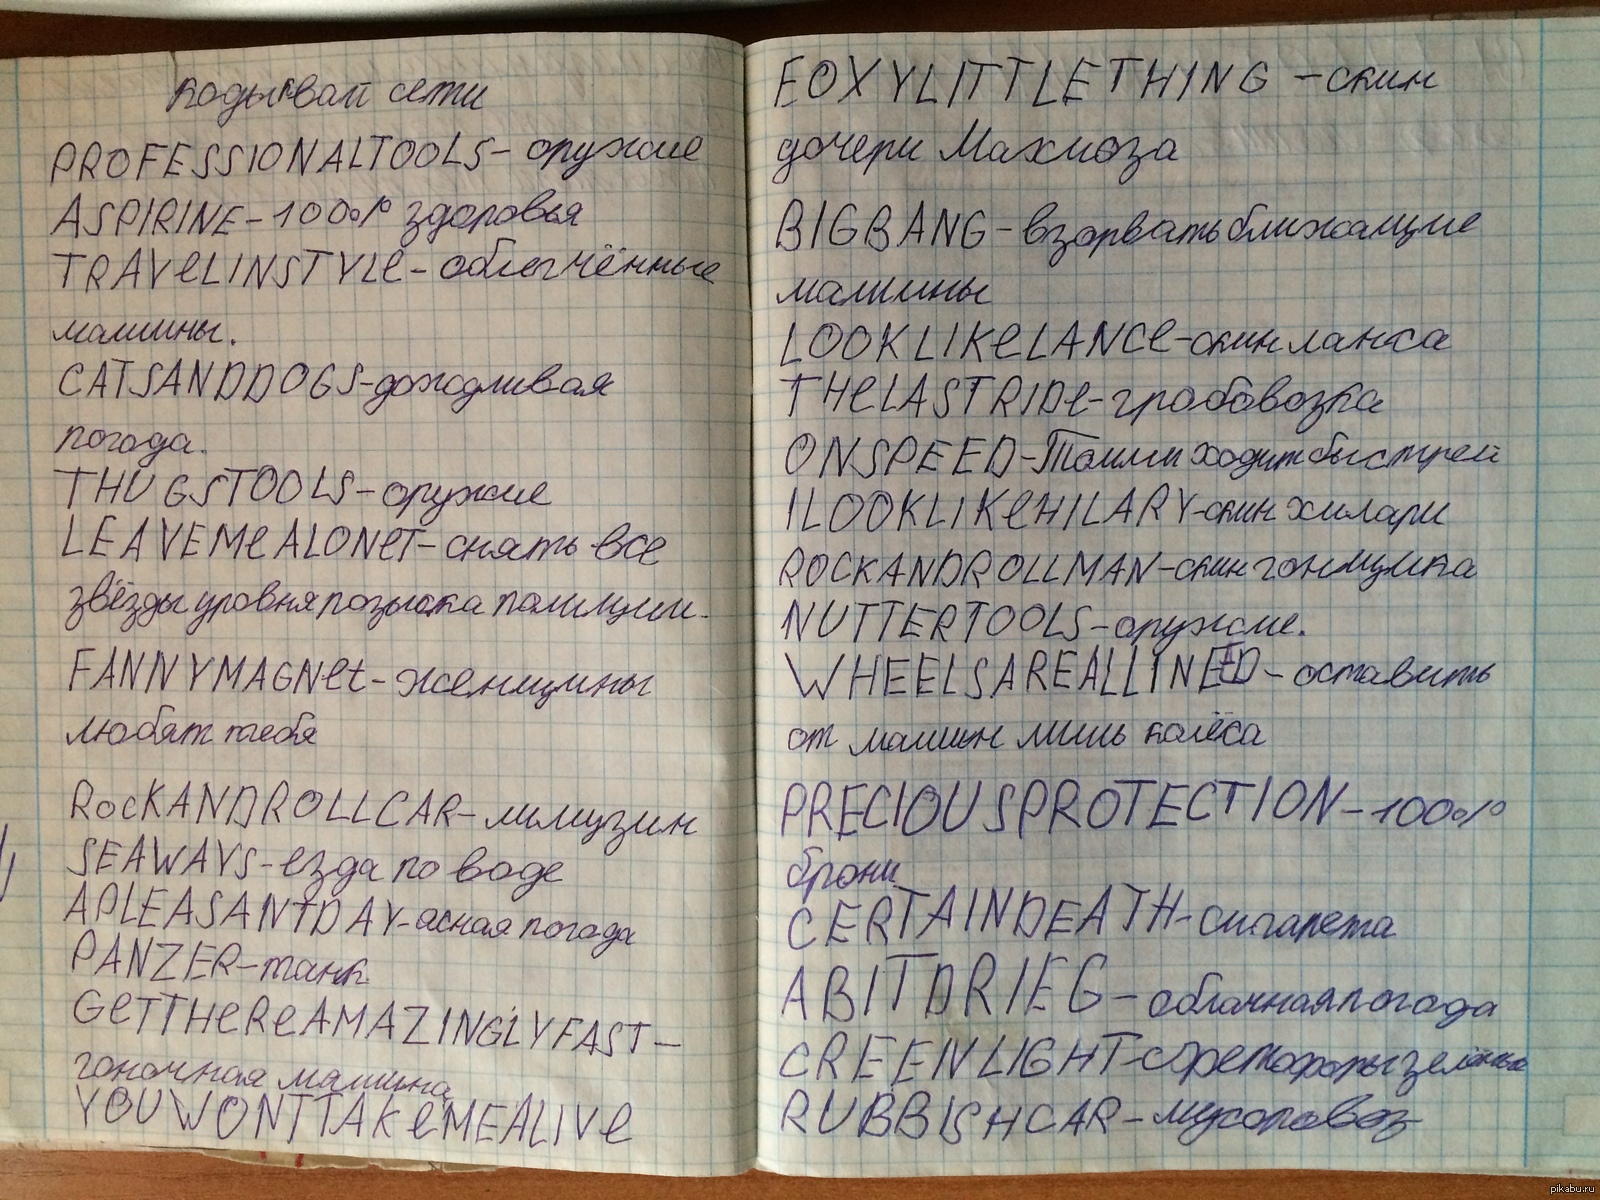 коды вай сети
PROFESSIONALTOOLS- оружие
ASPIRINE-100% здоровья
TRAVeLINSTYLe- облегчённые
машины.
CATSANDDOGS-дождливая
погода.
THUGSTOOLS-оружие
LEAVEMeALONeT-снять все
звёзды уровня розыска полиции.
FANNYMAGNet-женщины
любят тебя
RocKANDROLLCAR-лимузин
SEAWAYS-езда по воде
APLEASANTDAY-ясная погода
PANZER-танк
GeTTHeReAMAZINGLYFAST-
гоночная машина
YOUWONTTAKeMEALIVe
FOXYLITTLETHING -скин
дочери
BIGBANG-взорвать ближаищие
машины
LOOKLIKeLANCe-скин ланса
THeLASTRIDe-гробовозка
ONSPEED-Томми ходит быстрей
ILOOKLIKeHILARY-скин хилари
ROCKANDROLLMAN-скин гонщика
NUTTERTOOLS-оружие.
WHEELSAREALLINEED-оставить
от машин лишь колёса
PRECIOUSPROTECTION-100%
брони
CERTAINDEATH-сигарета
ABITDRIEG-облачная погода
CREENLIGHT-светофоры зелёные
RUBBISHCAR-мусоровоз
pikabu.ru